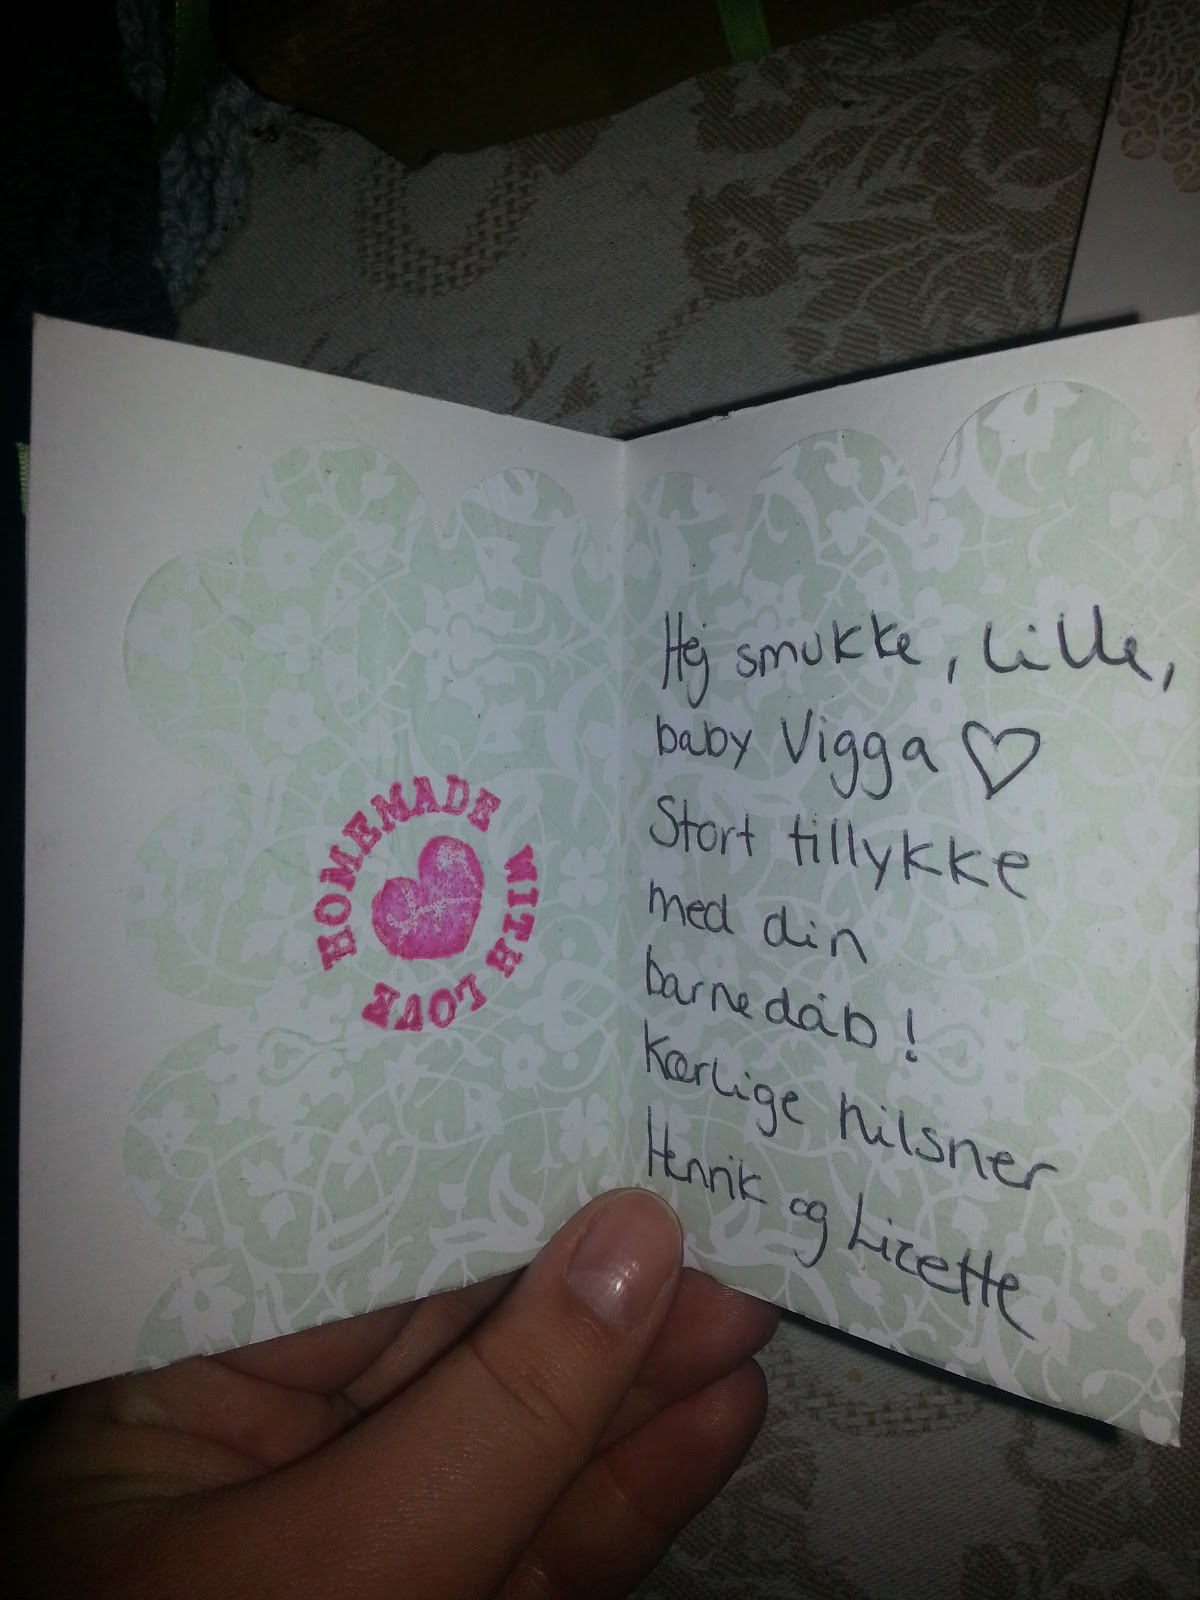 HOMEMADE WITH LOVE
Hej smukke, lille,
baby Vigga ♡
Stort tillykke
med din
barnedåb!
Kærlige hilsner
Henrik og Lizette